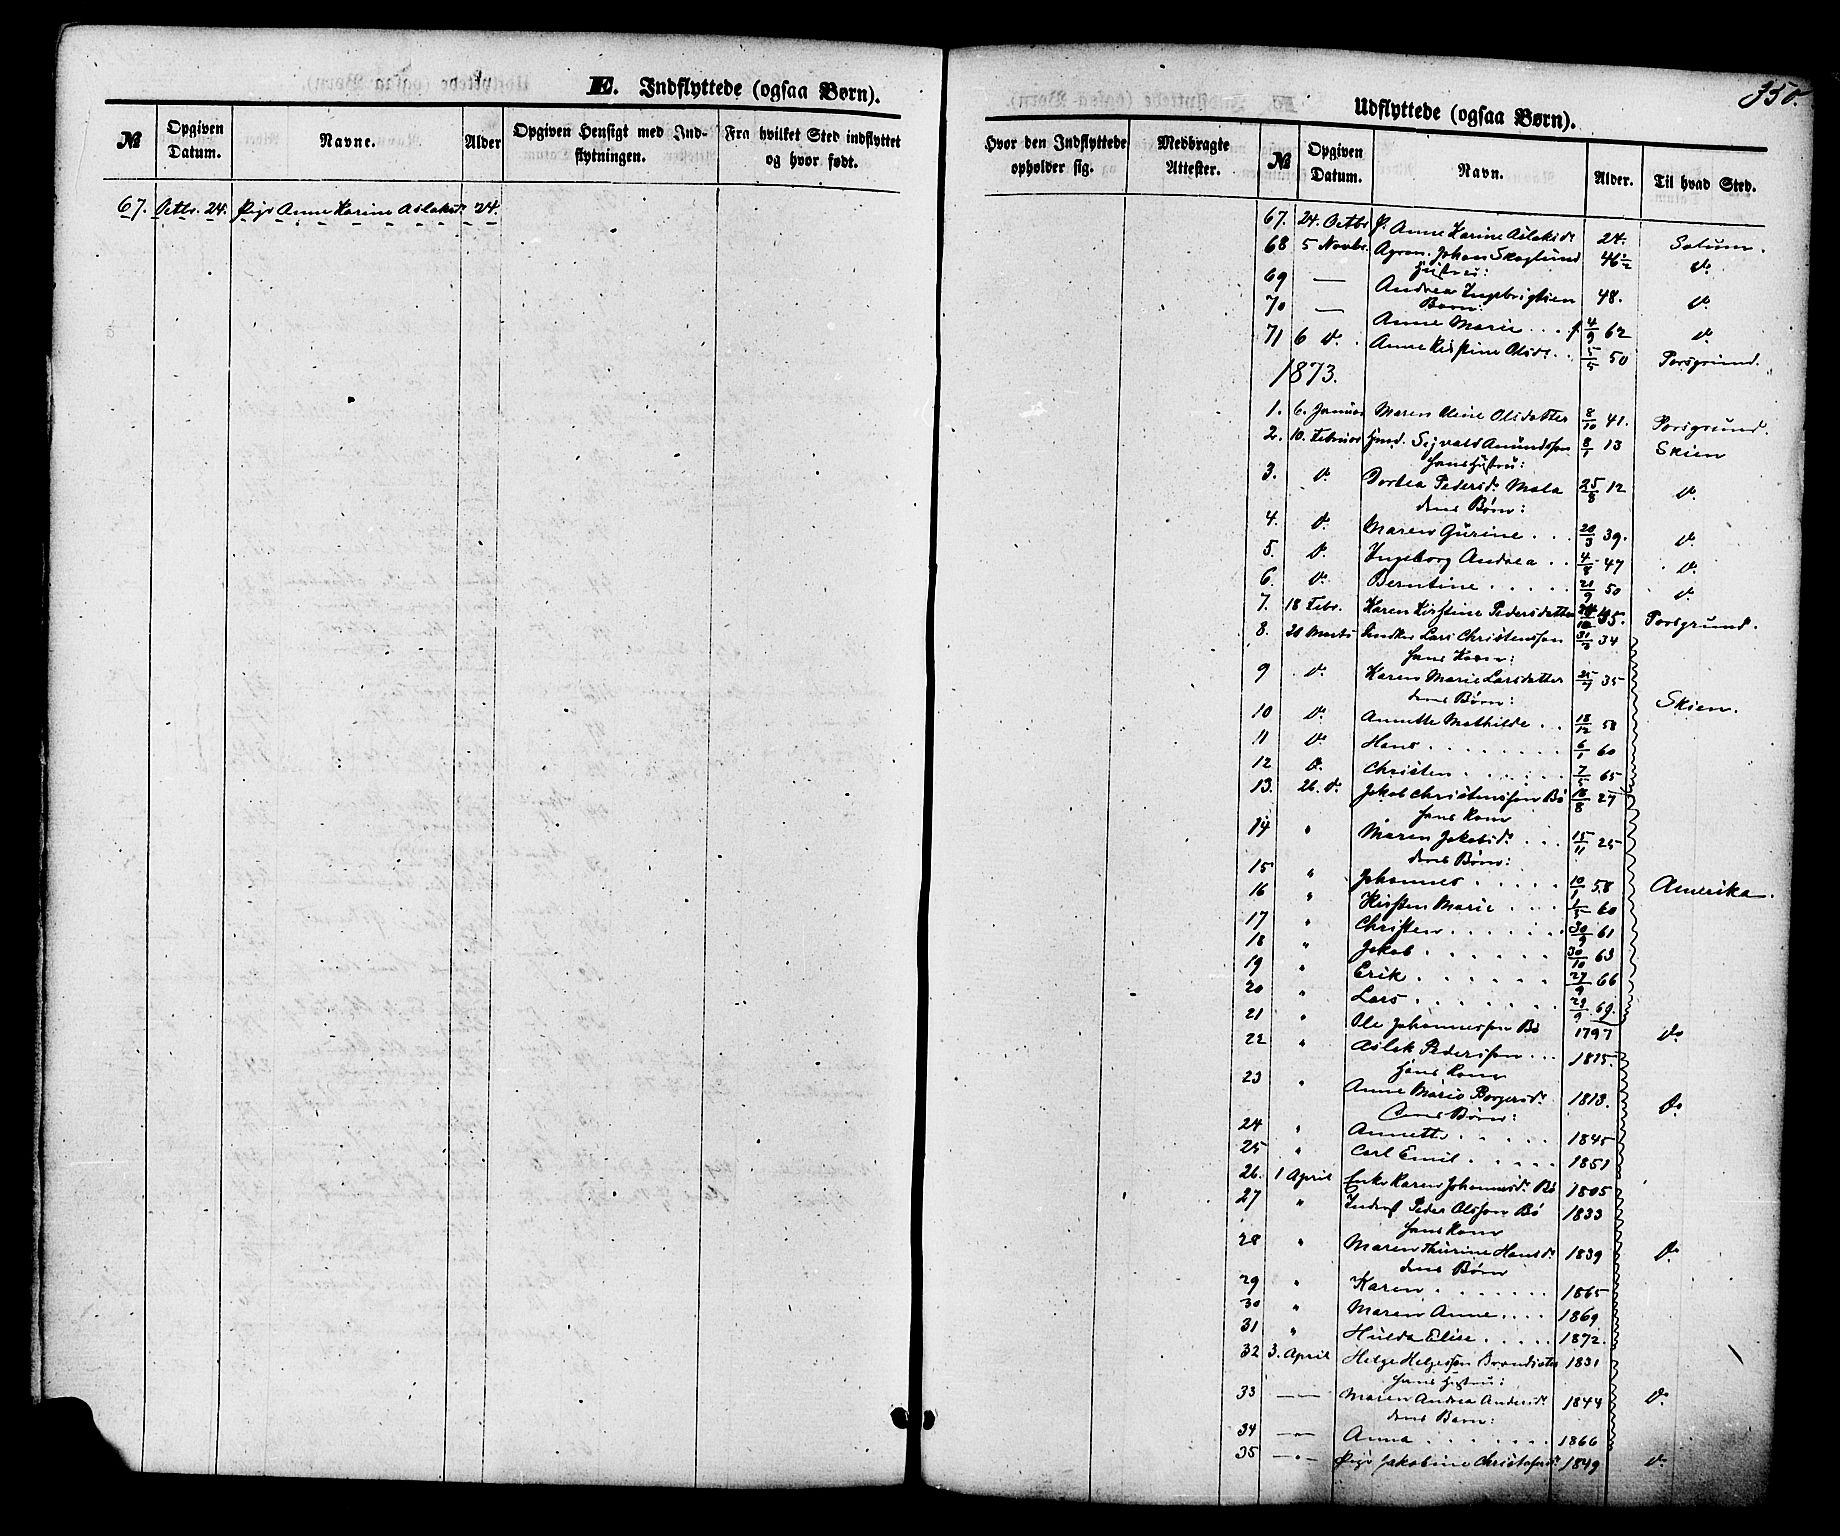 350.
E. Indflyttede (ogsaa Børn).
№ Opgiven Datum. Navne. Alder Opgiven Hensigt med Indflytningen. Fra hvilket Sted indflyttet og hvor født.
67. Octbr. 24. Pige Anne Karine Aslaksd. 24.
Udflyttede (ogsaa Børn).
Hvor den Indflyttede opholder sig. Medbragte Attester. № Opgiven Datum. Navn. Alder. Til hvad Sted.
67. 24. Octbr P. Anne Karine Aslaksdr 24. Solum.
68 5 Novbr. Agron. Johan Skoglund 46½ do
Hustru:
69 — Andrea Ingebrigtsen 48. do
Barn:
70 — Anne Marie . . . f. 4/9 62 do
71 6 do. Anne Kirstine Olsdr. . . 5/5 50 Porsgrund.
1873.
1. 6. Januar Maren Oline Olsdatter 8/10 41. Porsgrund.
2. 10. Februar Hmd. Sigvald Amundssøn 8/1 13 Skien
hans Hustru:
3. do Dorthea Pedersdr. Mæla 25/8 12 do
dens Børn:
4. do. Maren Gurine . . . 20/3 39. do.
5. do. Ingeborg Andrea . . 4/8 47 do.
6. do. Berntine . . . . . 21/9 50 do.
7. 18 Febr. Karen Kirstine Pedersdatter 35. Porsgrund.
8. 20 Marts Lars Christenssøn 31/3 34
hans Kone:
9 do. Karen Marie Larsdatter 25/7 35
dens Børn: Skien.
10 do. Annette Mathilde . . 18/12 58
11 do. Hans . . . . . . . . 6/1 60
12 do. Christen . . . . . . 7/5 65
13. 26. do. Jakob Christenssøn Bø 18/8 27
hans Kone
14 " Maren Jakobsdr. . . . 15/11 25
dens Børn:
15 " Johannes . . . . . 10/1 58 Amerika.
16 " Kirsten Marie . . . . 1/5 60
17 " Christen . . . . . . . 30/9 61
18 " Jakob . . . . . . 30/10 63
19 " Erik . . . . . . . 27/9 66
20 " Lars . . . . . . . 29/9 69.
21 " Ole Johannessøn Bø 1797 do
22 " Aslak Pederssøn . . . 1815
hans Kone
23 " Anne Marie Borgersdr. 1813. do
dens Børn:
24 " Annette . . . . . 1845
25 " Carl Emil . . . . . 1851
26. 1 April Enke Karen Johannesdr. Bø 1805
27 " Inderst Peder Olssøn Bø 1833
hans Kone
28 " Maren Thurine Hansdr. 1839 do
dens Børn
29 " Karen . . . . . . . . 1865
30 " Maren Anne . . . . 1869
31 " Hulda Elise . . . . . 1872.
32 3. April Helge Helgessøn 1831
hans Hustru:
33 — " — Maren Andrea Andersdr. 1844 do.
dens Barn:
34 — " — Anna . . . . . . . . 1866
35 — " — Pige Jakobine Christofersdr. 1849 do.